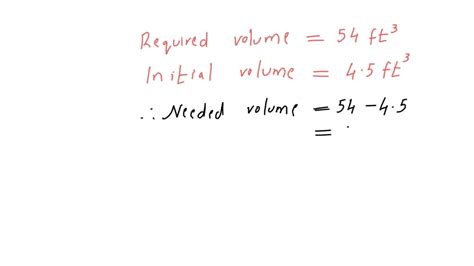 Required volume = 54 ft³
Initial volume = 4.5 ft³
∴ Needed volume = 54 - 4.5
=